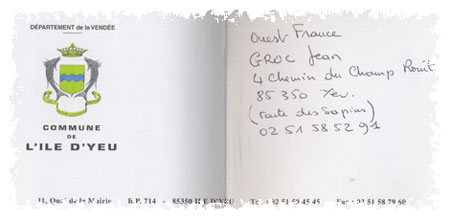 DÉPARTEMENT de la VENDÉE
COMMUNE
DE
L'ILE D'YEU
Ouest France
GROC Jean
4 Chemin du Champ Rouit
85350 Yeu.
(route des Sapins)
02 51 58 52 91
11, Quai de la Mairie - B.P. 714 - 85350 ILE D'YEU Tél : 02 51 59 45 45 Fax : 02 51 58 79 50